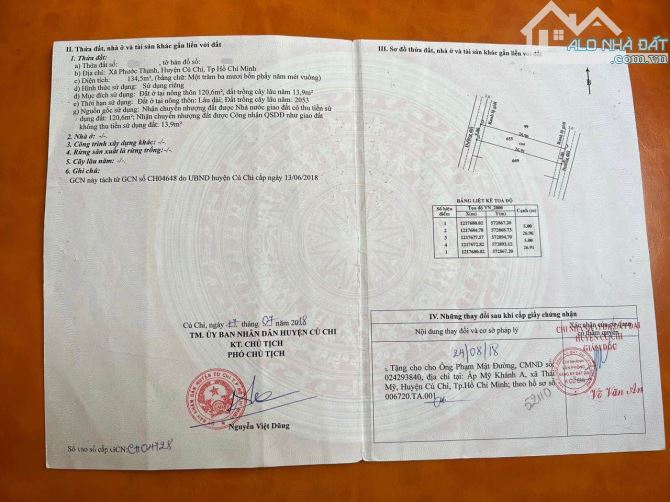 ALO NHÀ ĐẤT
II. Thửa đất, nhà ở và tài sản khác gắn liền với đất
1. Thửa đất:
a) Thửa đất số: , tờ bản đồ số:
b) Địa chỉ: Xã Phước Thạnh, Huyện Củ Chi, Tp Hồ Chí Minh
c) Diện tích: 134,5m², (bằng chữ: Một trăm ba mươi bốn phẩy năm mét vuông)
d) Hình thức sử dụng: Sử dụng riêng
đ) Mục đích sử dụng: Đất ở tại nông thôn 120,6m², đất trồng cây lâu năm 13,9m²
e) Thời hạn sử dụng: Đất ở tại nông thôn: Lâu dài; Đất trồng cây lâu năm: 2053
g) Nguồn gốc sử dụng: Nhận chuyển nhượng đất được Nhà nước giao đất có thu tiền sử
dụng đất: 120,6m²; Nhận chuyển nhượng đất được Công nhận QSDĐ như giao đất
không thu tiền sử dụng đất: 13,9m²
2. Nhà ở: -/-
3. Công trình xây dựng khác: -/-
4. Rừng sản xuất là rừng trồng: -/-
5. Cây lâu năm: -/-
6. Ghi chú:
GCN này tách từ GCN số CH04648 do UBND huyện Củ Chi cấp ngày 13/06/2018
Củ Chi, ngày 17 tháng 07 năm 2018
TM. ỦY BAN NHÂN DÂN HUYỆN CỦ CHI
KT. CHỦ TỊCH
PHÓ CHỦ TỊCH
Nguyễn Việt Dũng
Số vào sổ cấp GCN: CH04928
III. Sơ đồ thửa đất, nhà ở và tài sản khác gắn liền với đất
99
669
BẢNG LIỆT KÊ TOẠ ĐỘ
Số hiệu điểm Toạ độ VN_2000 Cạnh (m)
X(m) Y(m)
1 1217680.02 572867.20
5.00
2 572868.73
26.90
3 1217677.57 572894.70
5.00
4 1217672.82 572893.12
26.91
1 1217680.02 572867.20
IV. Những thay đổi sau khi cấp giấy chứng nhận
Nội dung thay đổi và cơ sở pháp lý
Xác nhận của cơ quan có thẩm quyền
24/08/18
HUYỆN CỦ CHI
GIÁM ĐỐC
Tặng cho cho Ông Phạm Mật Đường, CMND số:
024293840, địa chỉ tại: Ấp Mỹ Khánh A, xã Thái
Mỹ, Huyện Củ Chi, Tp.Hồ Chí Minh; theo hồ sơ số
006720.TA.001
52110
Võ Văn An